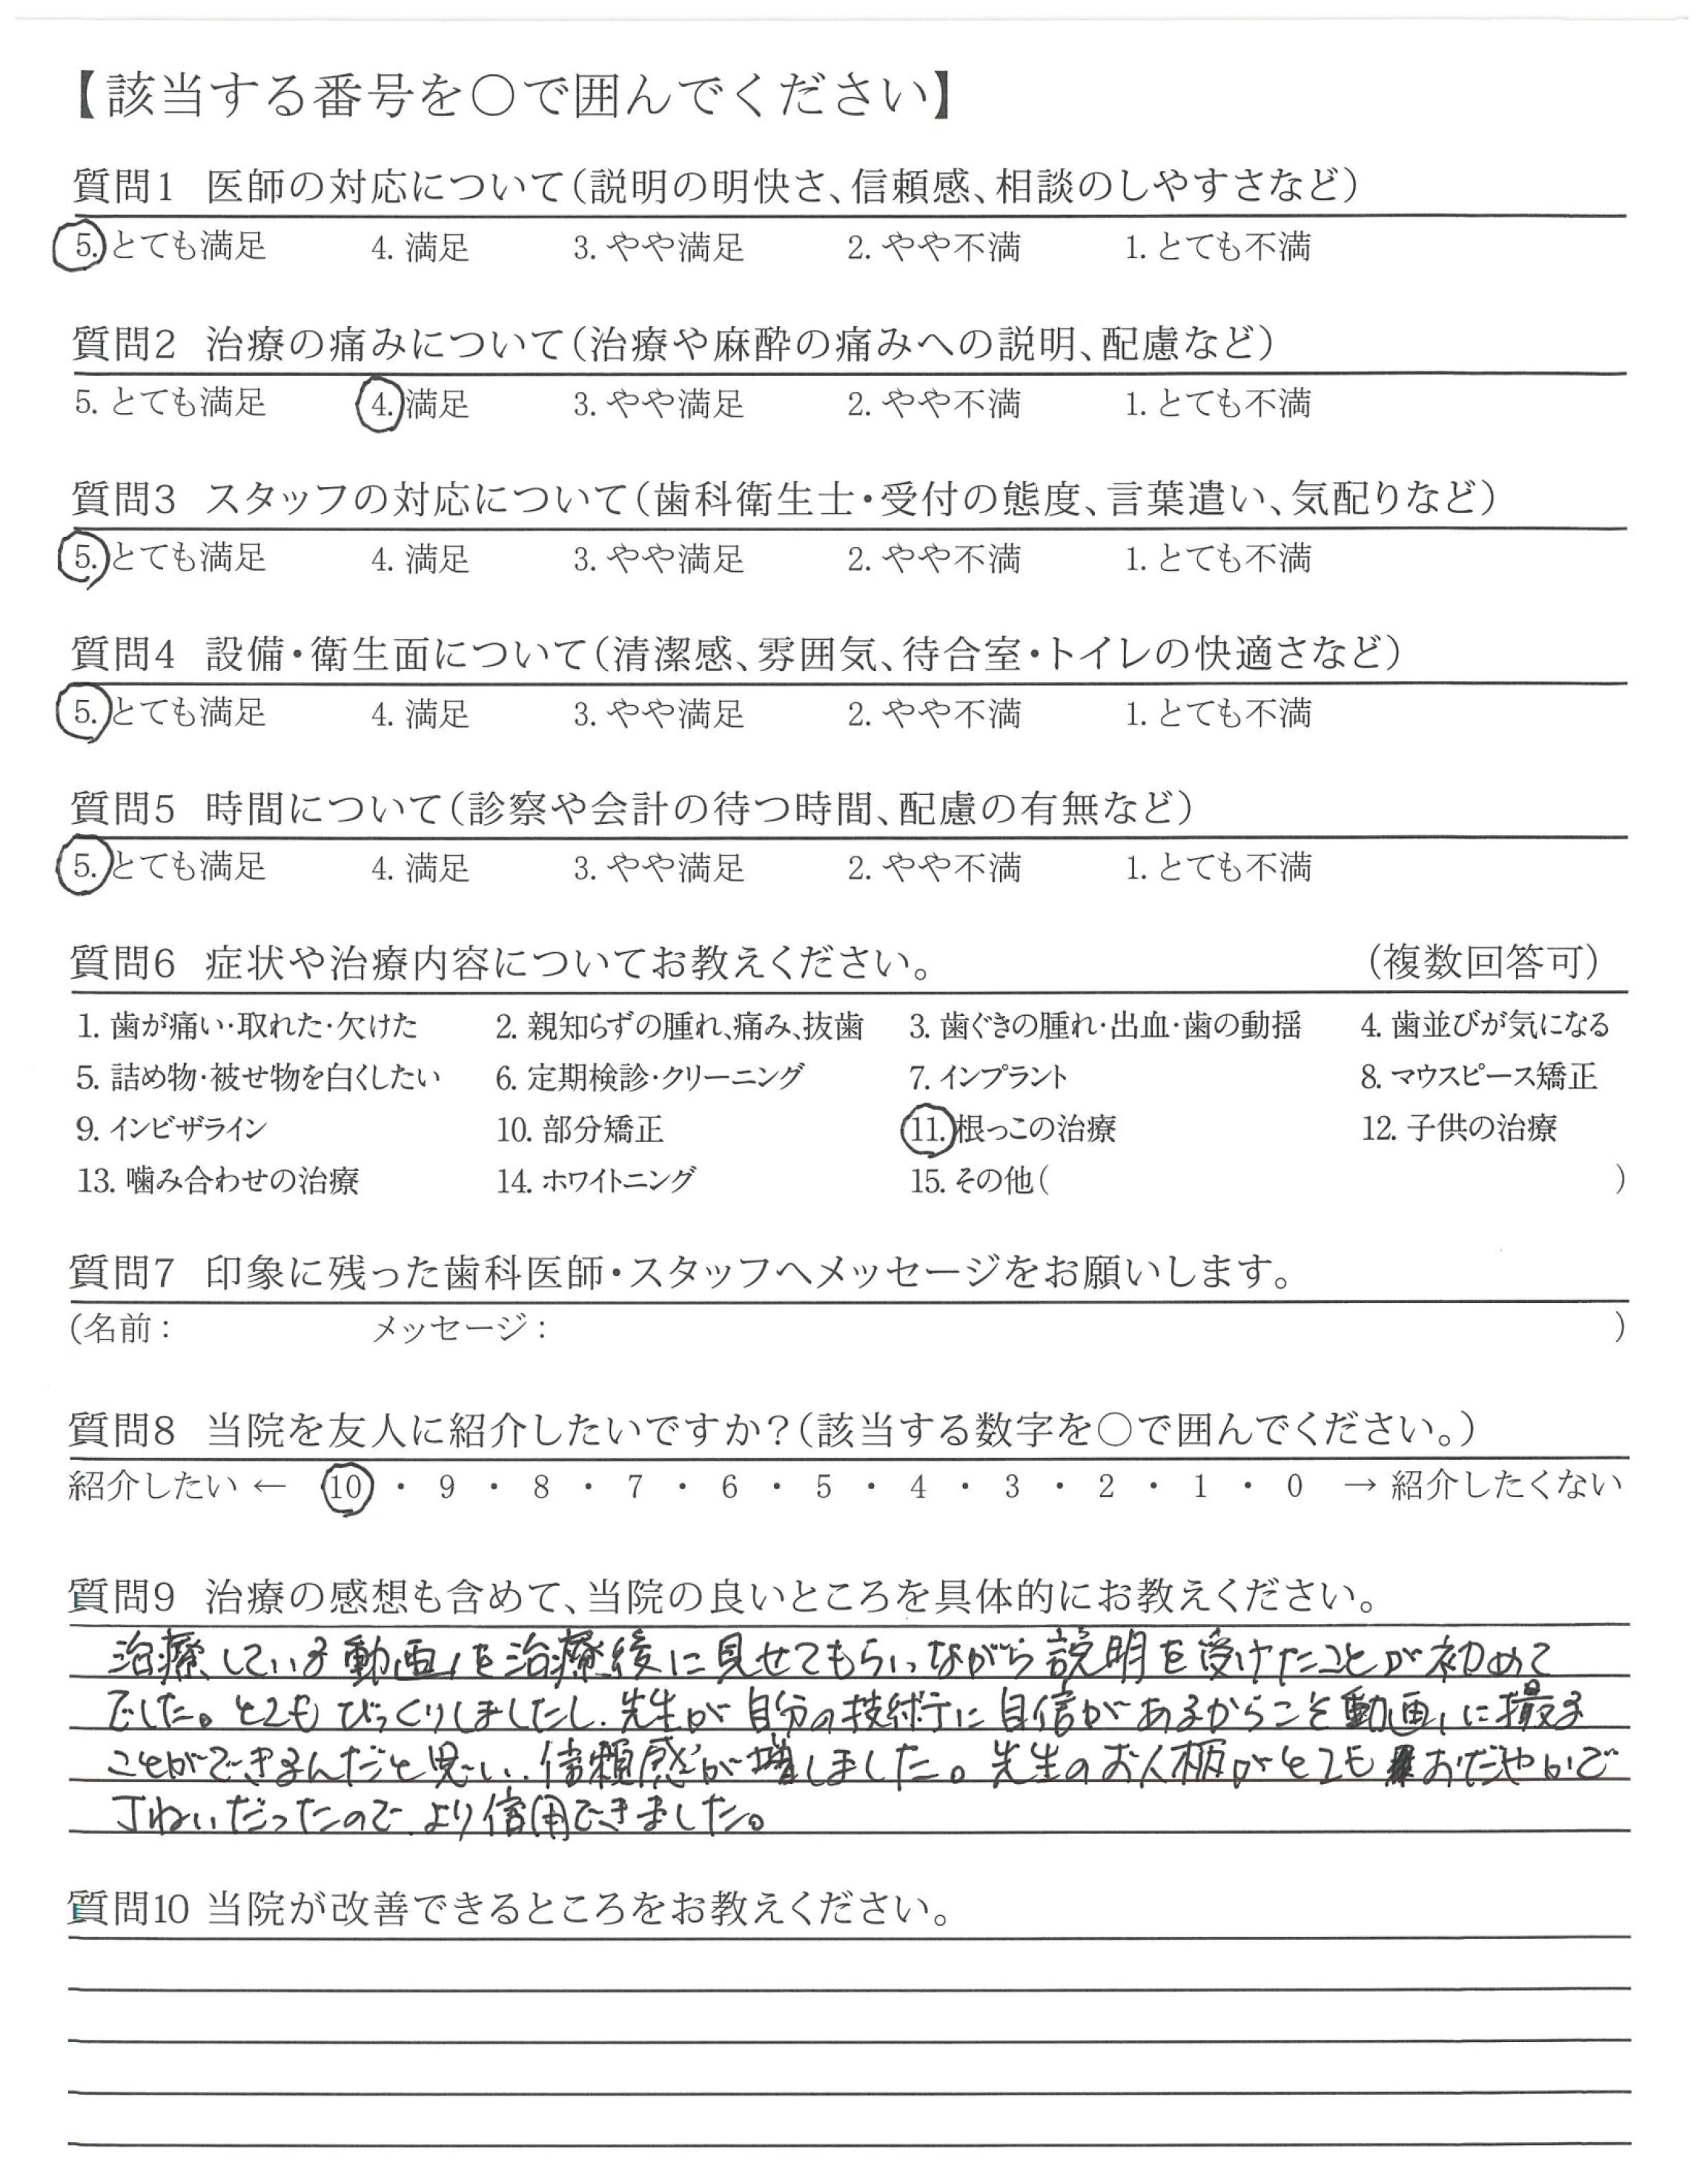 【該当する番号を○で囲んでください】
質問1 医師の対応について(説明の明快さ、信頼感、相談のしやすさなど)
5. とても満足 4. 満足 3. やや満足 2. やや不満 1. とても不満
質問2 治療の痛みについて(治療や麻酔の痛みへの説明、配慮など)
5. とても満足 4. 満足 3. やや満足 2. やや不満 1. とても不満
質問3 スタッフの対応について(歯科衛生士・受付の態度、言葉遣い、気配りなど)
5. とても満足 4. 満足 3. やや満足 2. やや不満 1. とても不満
質問4 設備・衛生面について(清潔感、雰囲気、待合室・トイレの快適さなど)
5. とても満足 4. 満足 3. やや満足 2. やや不満 1. とても不満
質問5 時間について(診察や会計の待つ時間、配慮の有無など)
5. とても満足 4. 満足 3. やや満足 2. やや不満 1. とても不満
質問6 症状や治療内容についてお教えください。 (複数回答可)
1. 歯が痛い・取れた・欠けた 2. 親知らずの腫れ、痛み、抜歯 3. 歯ぐきの腫れ・出血・歯の動揺 4. 歯並びが気になる
5. 詰め物・被せ物を白くしたい 6. 定期検診・クリーニング 7. インプラント 8. マウスピース矯正
9. インビザライン 10. 部分矯正 11. 根っこの治療 12. 子供の治療
13. 噛み合わせの治療 14. ホワイトニング 15. その他( )
質問7 印象に残った歯科医師・スタッフへメッセージをお願いします。
(名前: メッセージ: )
質問8 当院を友人に紹介したいですか?(該当する数字を○で囲んでください。)
紹介したい ← 10 ・ 9 ・ 8 ・ 7 ・ 6 ・ 5 ・ 4 ・ 3 ・ 2 ・ 1 ・ 0 → 紹介したくない
質問9 治療の感想も含めて、当院の良いところを具体的にお教えください。
治療している動画を治療後に見せてもらいながら説明を受けたことが初めて
でした。とてもびっくりしましたし、先生が自分の技術に自信があるからこそ動画に撮る
ことができるんだと思い、信頼感が増しました。先生のお人柄がとてもおだやかで
丁ねいだったので、より信用できました。
質問10 当院が改善できるところをお教えください。